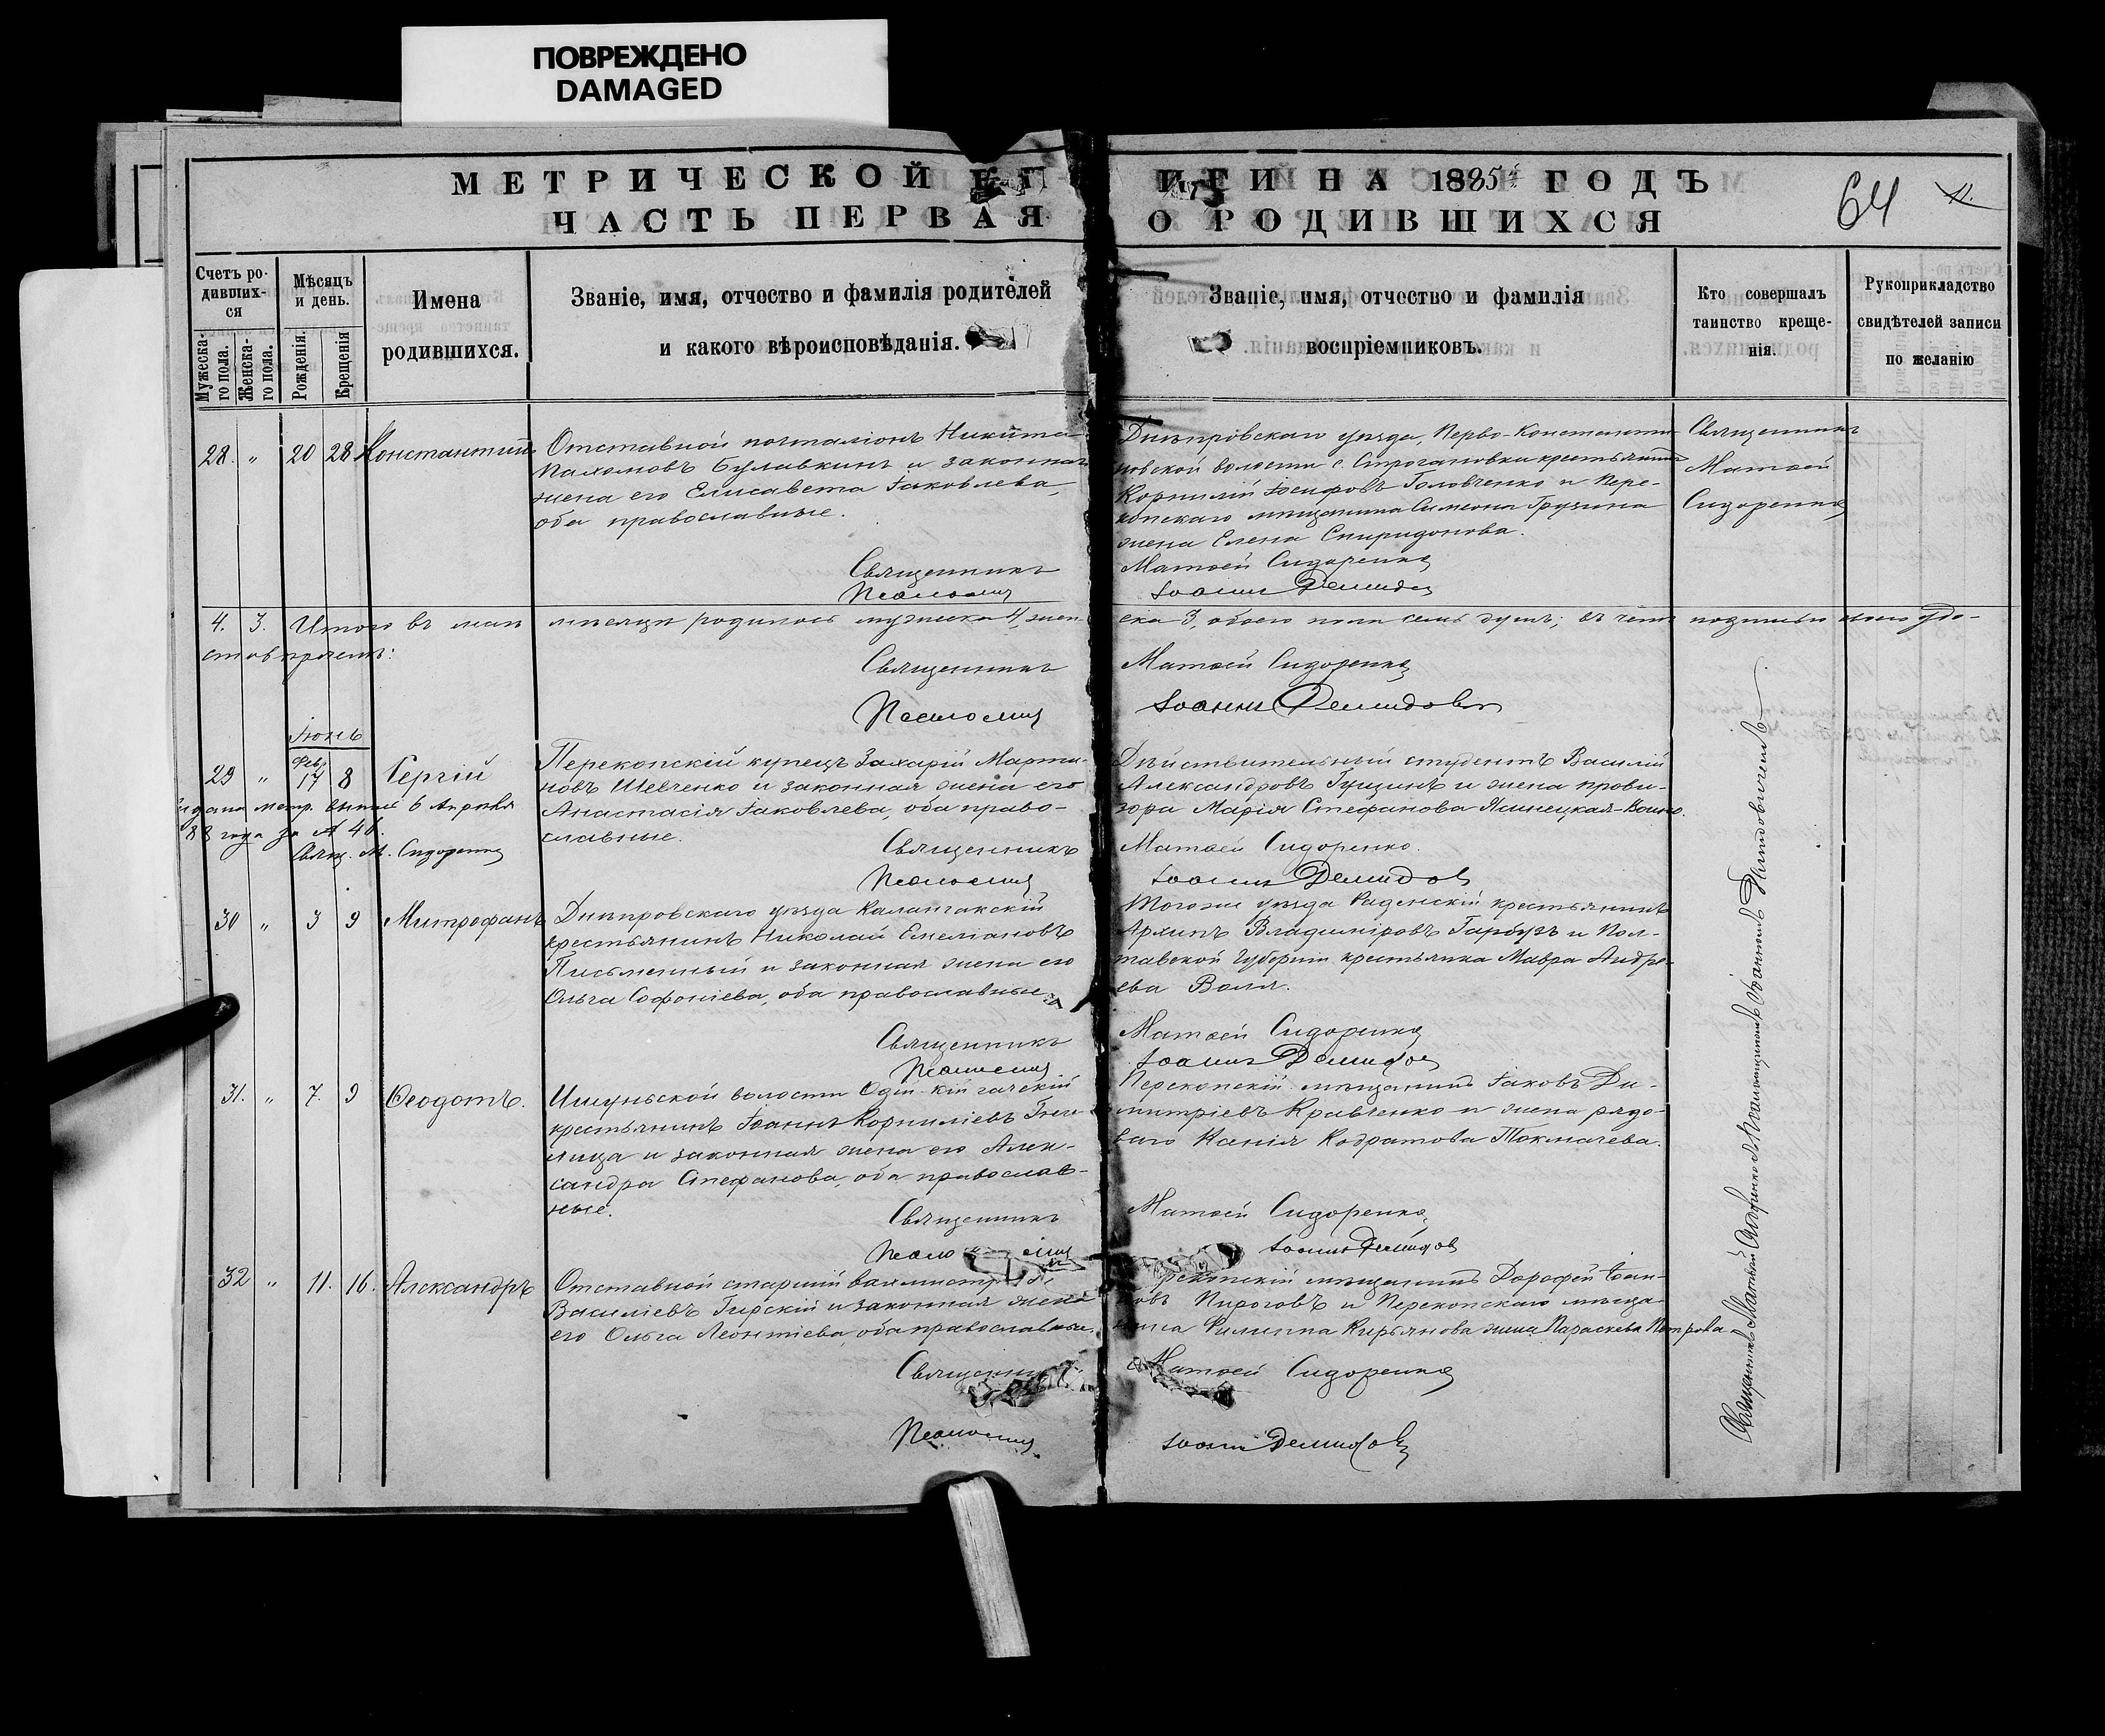 ПОВРЕЖДЕНО
DAMAGED
МЕТРИЧЕСКОЙ
ИГИ НА 1885 ГОДЪ
ЧАСТЬ ПЕРВАЯ
О РОДИВШИХСЯ
64
Счетъ ро-
дивших-
ся
Мужеска-
го пола.
Женска-
го пола.
Мѣсяцъ
и день.
Рожденія.
Крещенія
Имена
родившихся.
Званіе, имя, отчество и фамилія родителей
и какого вѣроисповѣданія.
Званіе, имя, отчество и фамилія
воспріемниковъ.
Кто совершалъ
таинство креще-
нія.
Рукоприкладство
свидѣтелей записи
по желанію
28. „ 20 28 Константинъ
Отставной почталіонъ Никита
Пахомовъ Булавкинъ и законная
жена его Елисавета Іаковлева,
оба православные.
Священникъ
Псаломщ
Днѣпровскаго уѣзда, Перво-Константи-
новской волости с. Строгановки крестьянинъ
Корнилій Іосифовъ Головченко и Пере-
копскаго мѣщанина Симеона Грузина
жена Елена Спиридонова.
Матѳей Сидоренко
Іоаннъ Демидов
Священникъ
Матѳей
Сидоренко
4. 3. Итого въ маѣ мѣсяцѣ родилось мужеска 4, жен
ска 3, обоего пола семь душъ; въ чемъ подписью удо-
стовѣряемъ:
Священникъ
Матѳей Сидоренко
Псаломщ
Іоаннъ Демидовъ
Іюнь
29 „ Фев. 17 8 Сергій
Перекопскій купецъ Захарій Марти-
новъ Шевченко и законная жена его
Анастасія Іаковлева, оба право-
славные.
Священникъ
Псаломщ
метр. 6 Апрѣля
88 года за № 46.
Свящ. М. Сидоренко
Дѣйствительный студентъ Василій
Александровъ Гущинъ и жена прови-
зора Марія Стефанова
Матѳей Сидоренко.
Іоаннъ Демидов
30 „ 3 9 Митрофанъ
Днѣпровскаго уѣзда Каланчакскій
крестьянинъ Николай Емеліановъ
Письменный и законная жена его
Ольга Софоніева, оба православные.
Священникъ
Псаломщ
Тогоже уѣзда Раденскій крестьянинъ
Архипъ Владиміровъ Гарбузъ и Пол-
тавской Губерніи крестьянка Мавра Андре-
ева
Матѳей Сидоренко
Іоаннъ Демидов
31. „ 7. 9 Ѳеодотъ.
Ишуньской волости
крестьянинъ Іоаннъ Корниліевъ
и законная жена его Алек-
сандра Стефанова, оба православ-
ные.
Священникъ
Псаломщ
Перекопскій мѣщанинъ Іаковъ Ди-
митріевъ Кравченко и жена рядо-
ваго Ксенія Кодратова Токмачева.
Матѳей Сидоренко
Іоаннъ Демидов
32 „ 11. 16. Александръ
Отставной старшій вахмистръ
Василіевъ Гирскій и законная жена
его Ольга Леонтіева, оба православные.
Священник
Псаломщ
рекопскій мѣщанинъ Дорофей Іоан-
новъ Пироговъ и Перекопскаго мѣща-
нина Филиппа Кирьянова жена Параскева Петрова
Матѳей Сидоренко
Іоаннъ Демидовъ
Священникъ Матѳей Сидоренко съ псаломщикомъ Іоанномъ Демидовичемъ